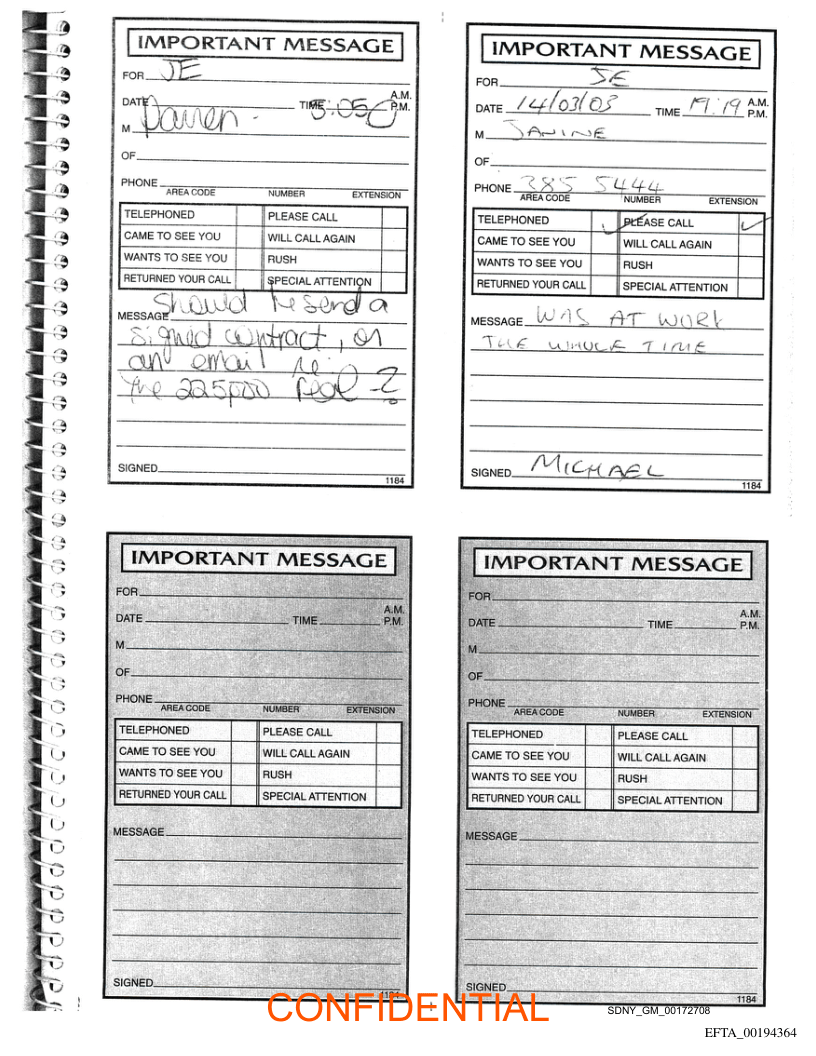 IMPORTANT MESSAGE
FOR JE
A.M.
DATE TIME 5:05 P.M.
M Darren.
OF
PHONE
AREA CODE NUMBER EXTENSION
TELEPHONED PLEASE CALL
CAME TO SEE YOU WILL CALL AGAIN
WANTS TO SEE YOU RUSH
RETURNED YOUR CALL SPECIAL ATTENTION
Should he send a
MESSAGE
signed contract, or
an email re:
the 225,000 deal?
SIGNED
1184
IMPORTANT MESSAGE
FOR JE
DATE 14/03/03 TIME 19:19 A.M.
P.M.
M JANINE
OF
PHONE 385 5444
AREA CODE NUMBER EXTENSION
TELEPHONED PLEASE CALL
CAME TO SEE YOU WILL CALL AGAIN
WANTS TO SEE YOU RUSH
RETURNED YOUR CALL SPECIAL ATTENTION
MESSAGE WAS AT WORK
THE WHOLE TIME
SIGNED MICHAEL
1184
IMPORTANT MESSAGE
FOR
A.M.
DATE TIME P.M.
M
OF
PHONE
AREA CODE NUMBER EXTENSION
TELEPHONED PLEASE CALL
CAME TO SEE YOU WILL CALL AGAIN
WANTS TO SEE YOU RUSH
RETURNED YOUR CALL SPECIAL ATTENTION
MESSAGE
SIGNED
1184
IMPORTANT MESSAGE
FOR
A.M.
DATE TIME P.M.
M
OF
PHONE
AREA CODE NUMBER EXTENSION
TELEPHONED PLEASE CALL
CAME TO SEE YOU WILL CALL AGAIN
WANTS TO SEE YOU RUSH
RETURNED YOUR CALL SPECIAL ATTENTION
MESSAGE
SIGNED
1184
CONFIDENTIAL
SDNY_GM_00172708
EFTA_00194364